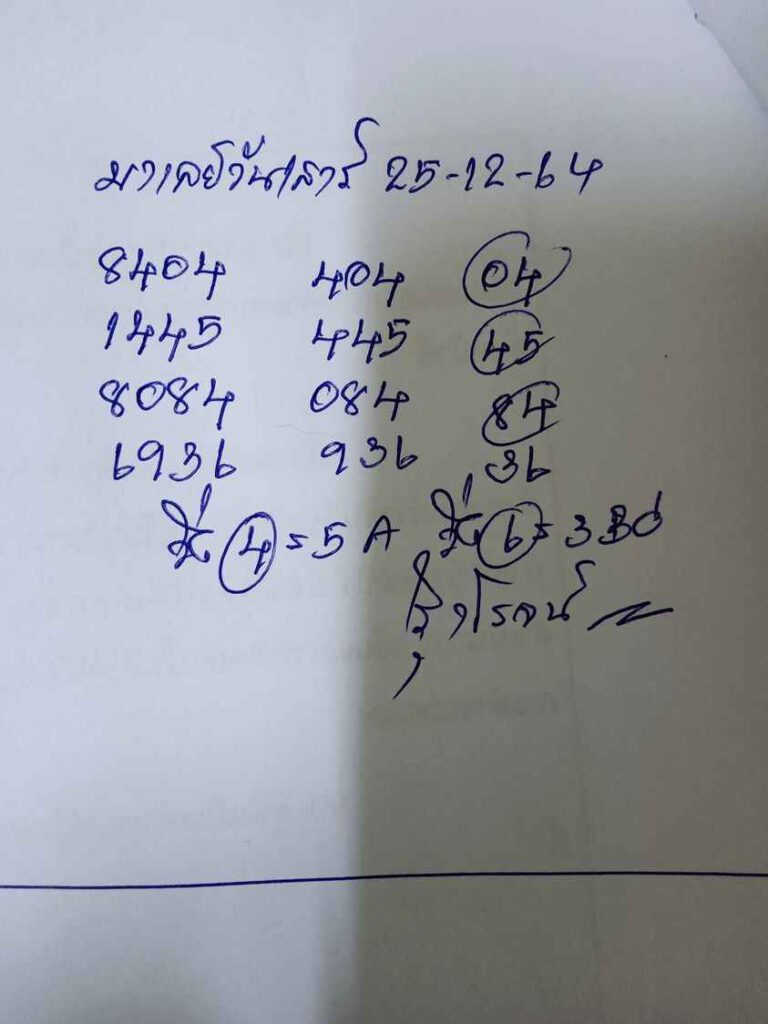 มาเลย์วันเสาร์ 25-12-64
8404 404 04
1445 445 45
8084 084 84
6936 936 36
4 = 5 A 6 =